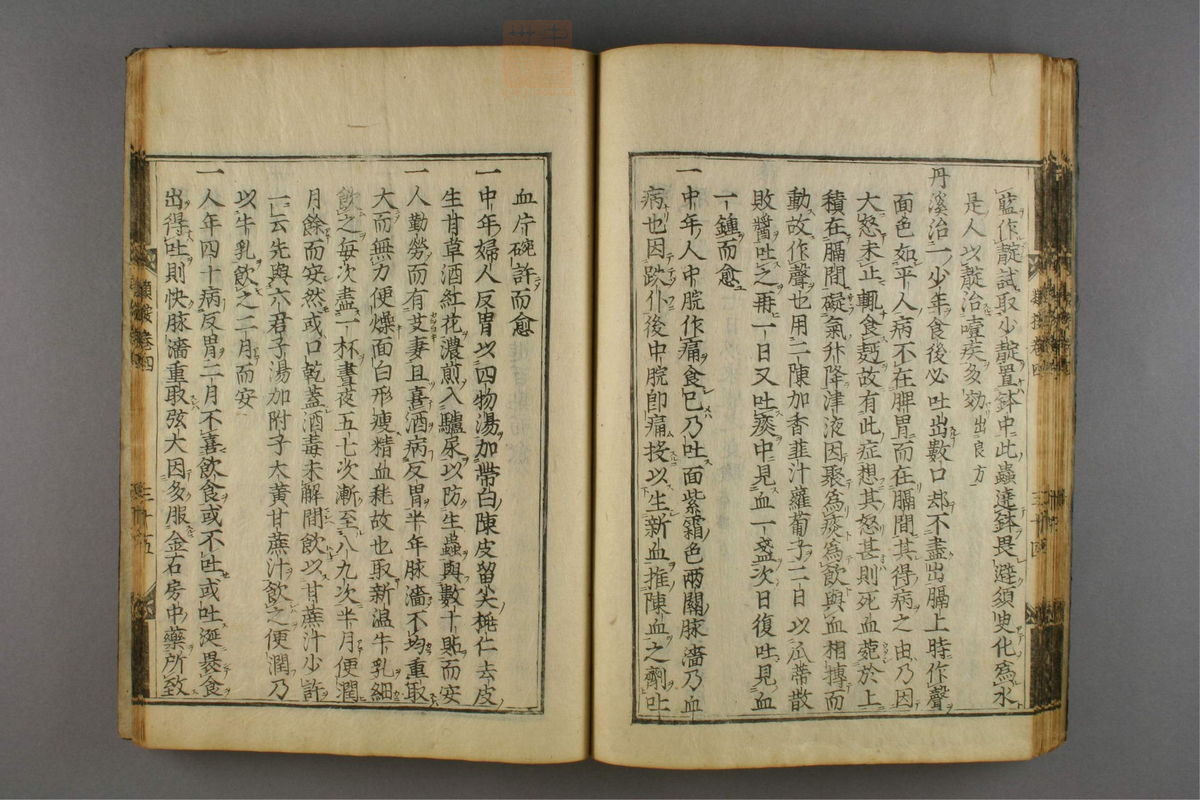 藍作靛試取少靛置鉢中此蟲遶鉢畏避須臾化為水
是人以靛治噎疾多効出良方
丹溪治一少年食後必吐出數口却不盡出膈上時作聲
面色如平人病不在脾胃而在膈間其得病之由乃因
大怒未止輒食麪故有此症想其怒甚則死血菀於上
積在膈間礙氣升降津液因聚為痰為飲與血相搏而
動故作聲也用二陳加香韮汁蘿蔔子二日以瓜蒂散
敗醬吐之再一日又吐痰中見血一盞次日復吐見血
一鍾而愈
一中年人中脘作痛食已乃吐面紫霜色兩關脉濇乃血
病也因跌仆後中脘即痛投以生新血推陳血之劑吐
血片碗許而愈
一中年婦人反胃以四物湯加帶白陳皮留尖桃仁去皮
生甘草酒紅花濃煎入驢尿以防生蟲與數十貼而安
一人勤勞而有艾妻且喜酒病反胃半年脉濇不均重取
大而無力便燥面白形瘦精血耗故也取新温牛乳細
飲之每次盡一杯晝夜五七次漸至八九次半月便潤
月餘而安然或口乾蓋酒毒未解間飲以甘蔗汁少許
一云先與六君子湯加附子大黄甘蔗汁飲之便潤乃
以牛乳飲之二月而安
一人年四十病反胃二月不喜飲食或不吐或吐涎裹食
出得吐則快脉濇重取弦大因多服金石房中藥所致
卷四
三十五